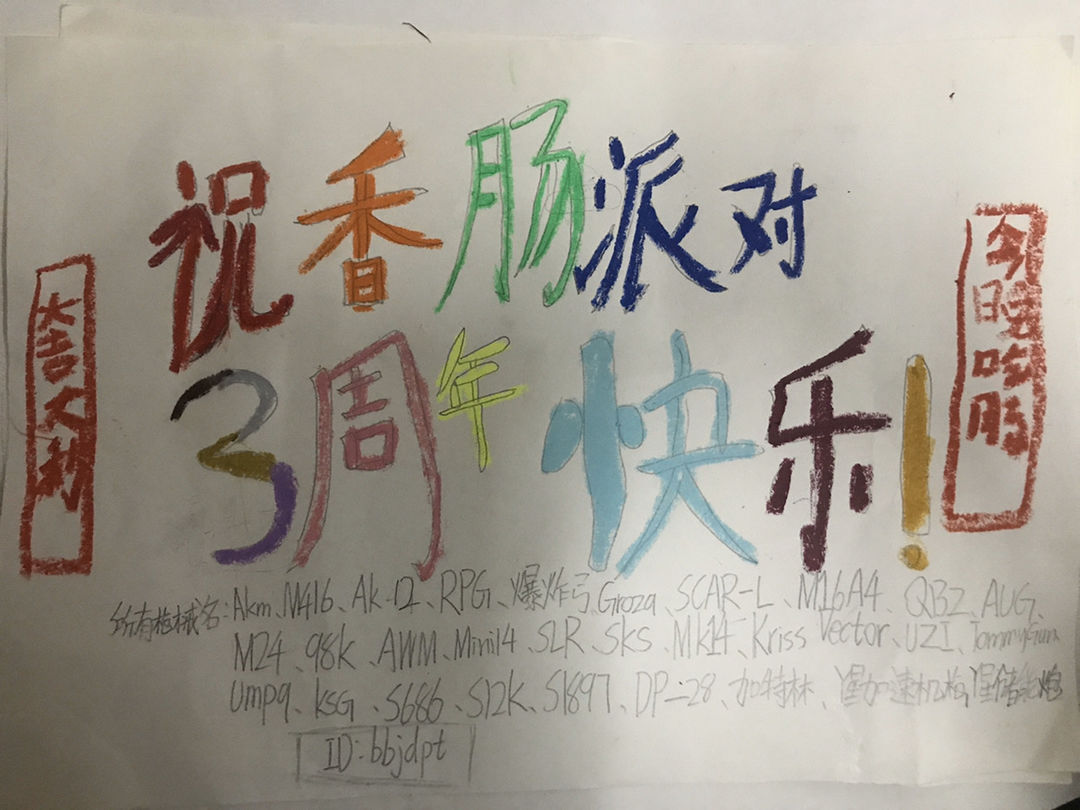 祝香肠派对
3周年快乐!
大吉大利
今日
所有枪械名:Akm、M416、AK-12、RPG、爆炸弓、Groza、SCAR-L、M16A4、QBZ、AUG、
M24、98k、AWM、Mini14、SLR、SKS、MK14、Kriss Vector、UZI、TommyGun
Ump9、KSG、S686、S12K、S1897、DP-28、加特林、
ID:bbjdpt